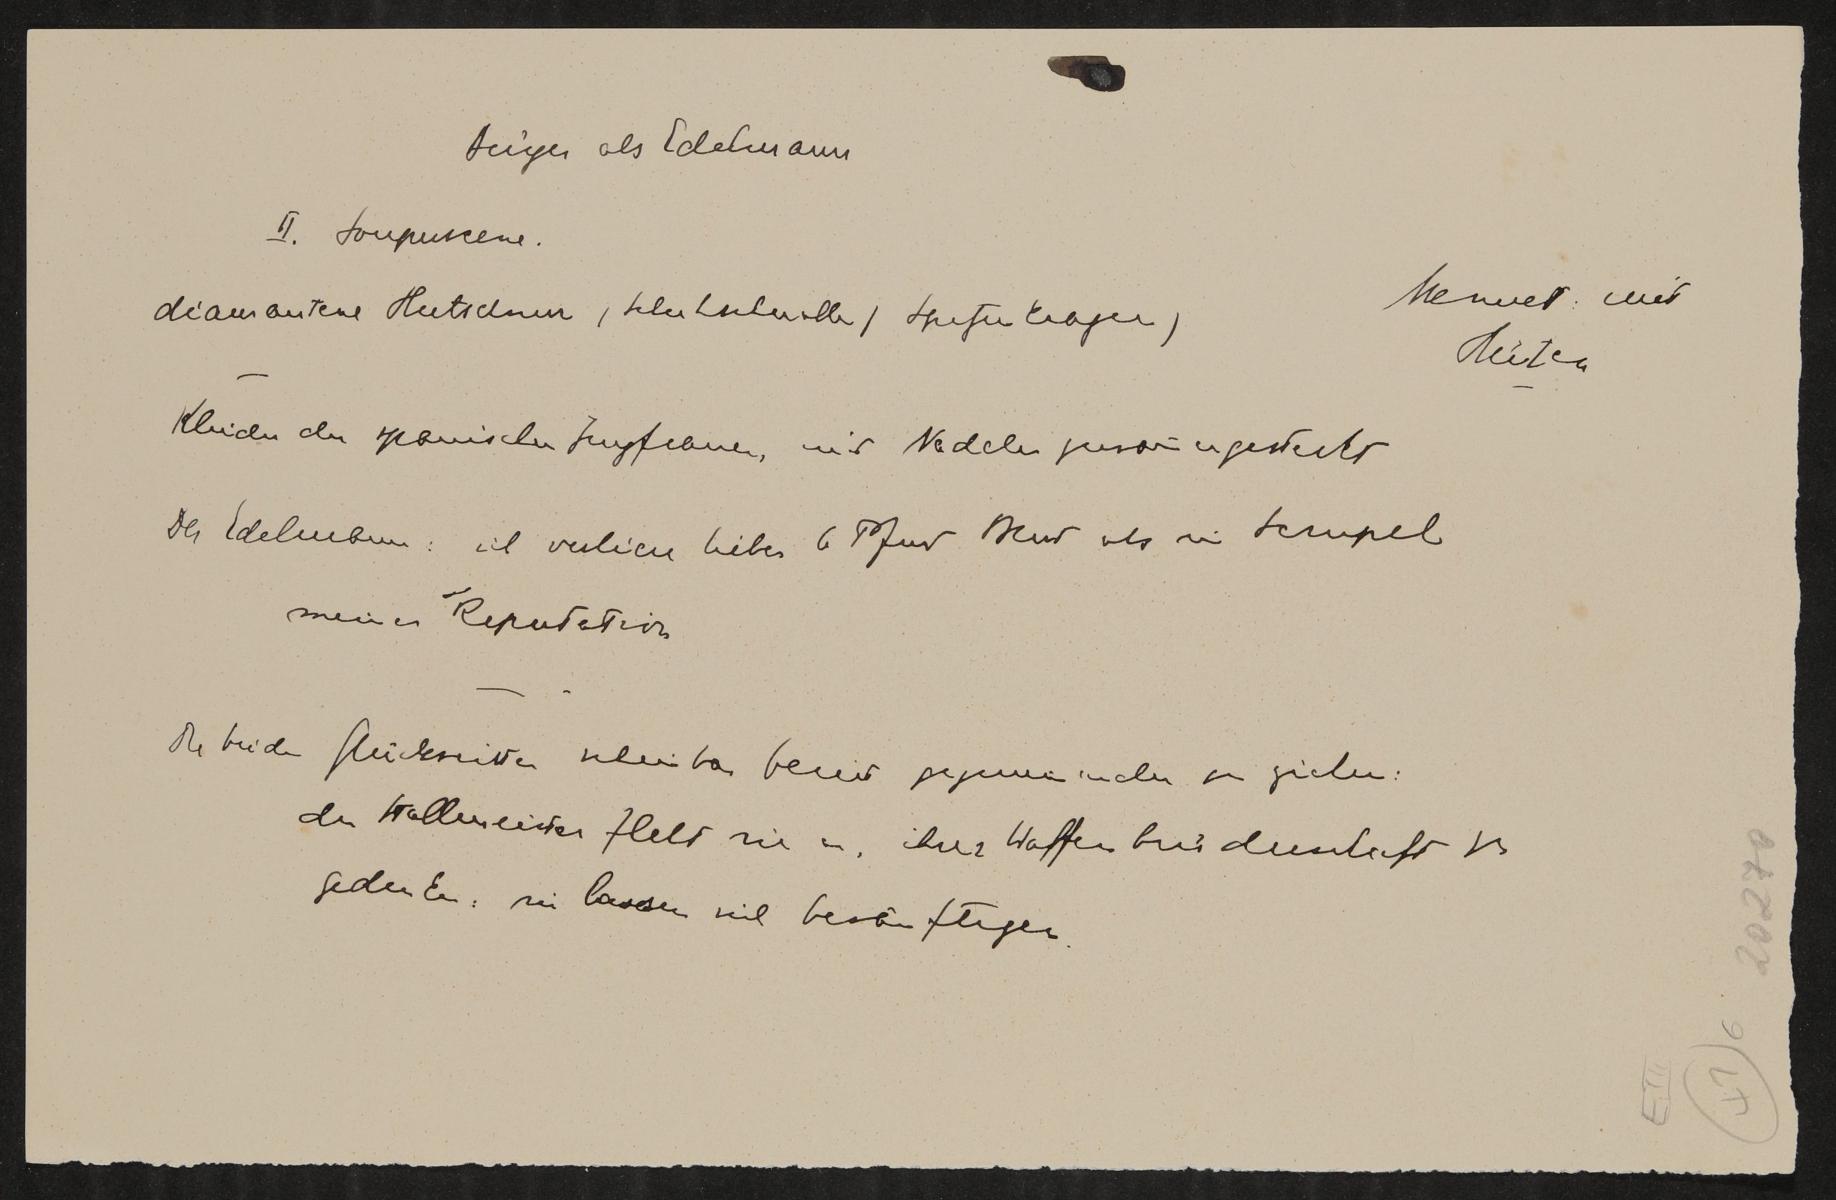 Bürger als Edelmann
II. Souperscene.
diamantene Hutschnur, Schuhschnalle, Spitzenkragen,
Menuet: mit
Hüten
Kleider der spanischen Jungfrauen, mit Nadeln zusammengesteckt
Der Edelmann: ich verliere lieber 6 Pfund Blut als ein Scrupel
meiner Reputation
Die beiden Glücksritter scheinbar bereit gegeneinander zu ziehen:
der Stallmeister fleht sie an, ihrer Waffenbrüderschaft zu
gedenken: sie lassen sich besänftigen.
20270
47
6
E III